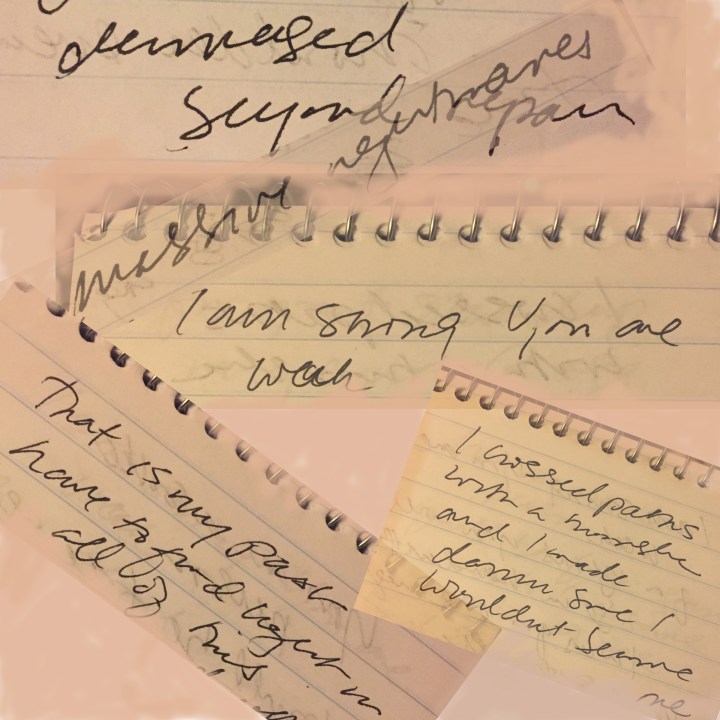 damaged
beyond repair
massive
I am strong You are
weak
That is my past
have to find light in
all of this
I crossed paths
with a monster
and I made
damn sure I
wouldn't become
one